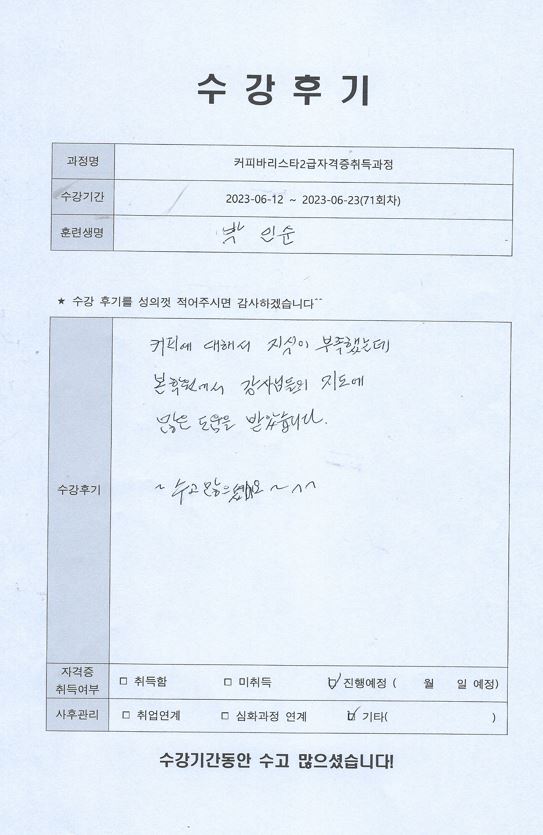 수강후기
과정명 커피바리스타2급자격증취득과정
수강기간 2023-06-12 ~ 2023-06-23(71회차)
훈련생명 박인순
★ 수강 후기를 성의껏 적어주시면 감사하겠습니다^^
커피에 대해서 지심이 부족했는데
본학원에서 강사님들의 지도에
많은 도움을 받았습니다.
수강후기
~ 수고많으셨어요 ~ ^^
자격증
취득여부 □ 취득함 □ 미취득 ☑ 진행예정 ( 월 일 예정)
사후관리 □ 취업연계 □ 심화과정 연계 ☑ 기타( )
수강기간동안 수고 많으셨습니다!